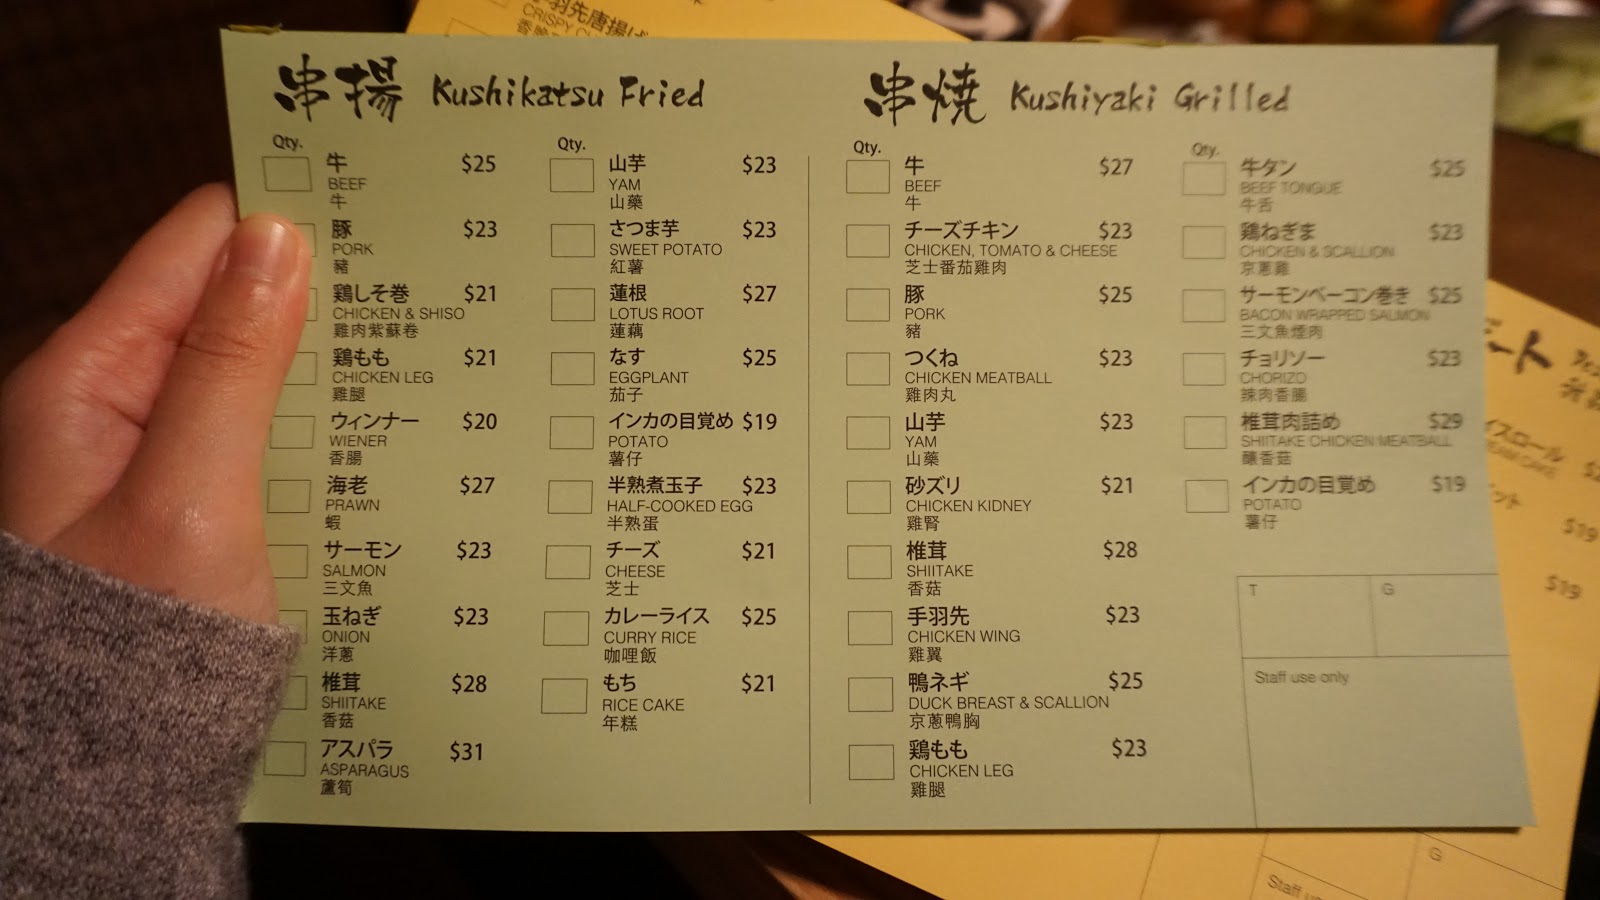 手羽先唐揚げ
串揚 Kushikatsu Fried
Qty.
牛 $25
BEEF
牛
豚 $23
PORK
豬
鶏しそ巻 $21
CHICKEN & SHISO
雞肉紫蘇卷
鶏もも $21
CHICKEN LEG
雞腿
ウィンナー $20
WIENER
香腸
海老 $27
PRAWN
蝦
サーモン $23
SALMON
三文魚
玉ねぎ $23
ONION
洋蔥
椎茸 $28
SHIITAKE
香菇
アスパラ $31
ASPARAGUS
蘆筍
Qty.
山芋 $23
YAM
山藥
さつま芋 $23
SWEET POTATO
紅薯
蓮根 $27
LOTUS ROOT
蓮藕
なす $25
EGGPLANT
茄子
インカの目覚め $19
POTATO
薯仔
半熟煮玉子 $23
HALF-COOKED EGG
半熟蛋
チーズ $21
CHEESE
芝士
カレーライス $25
CURRY RICE
咖哩飯
もち $21
RICE CAKE
年糕
串焼 Kushiyaki Grilled
Qty.
牛 $27
BEEF
牛
チーズチキン $23
CHICKEN, TOMATO & CHEESE
芝士番茄雞肉
豚 $25
PORK
豬
つくね $23
CHICKEN MEATBALL
雞肉丸
山芋 $23
YAM
山藥
砂ズリ $21
CHICKEN KIDNEY
雞腎
椎茸 $28
SHIITAKE
香菇
手羽先 $23
CHICKEN WING
雞翼
鴨ネギ $25
DUCK BREAST & SCALLION
京蔥鴨胸
鶏もも $23
CHICKEN LEG
雞腿
Qty.
牛タン $25
BEEF TONGUE
牛舌
鶏ねぎま $23
CHICKEN & SCALLION
京蔥雞
サーモンベーコン巻き $25
BACON WRAPPED SALMON
三文魚煙肉
チョリソー $23
CHORIZO
辣肉香腸
椎茸肉詰め $29
SHIITAKE CHICKEN MEATBALL
釀香菇
インカの目覚め $19
POTATO
薯仔
T G
Staff use only
$19
$19
G
Staff